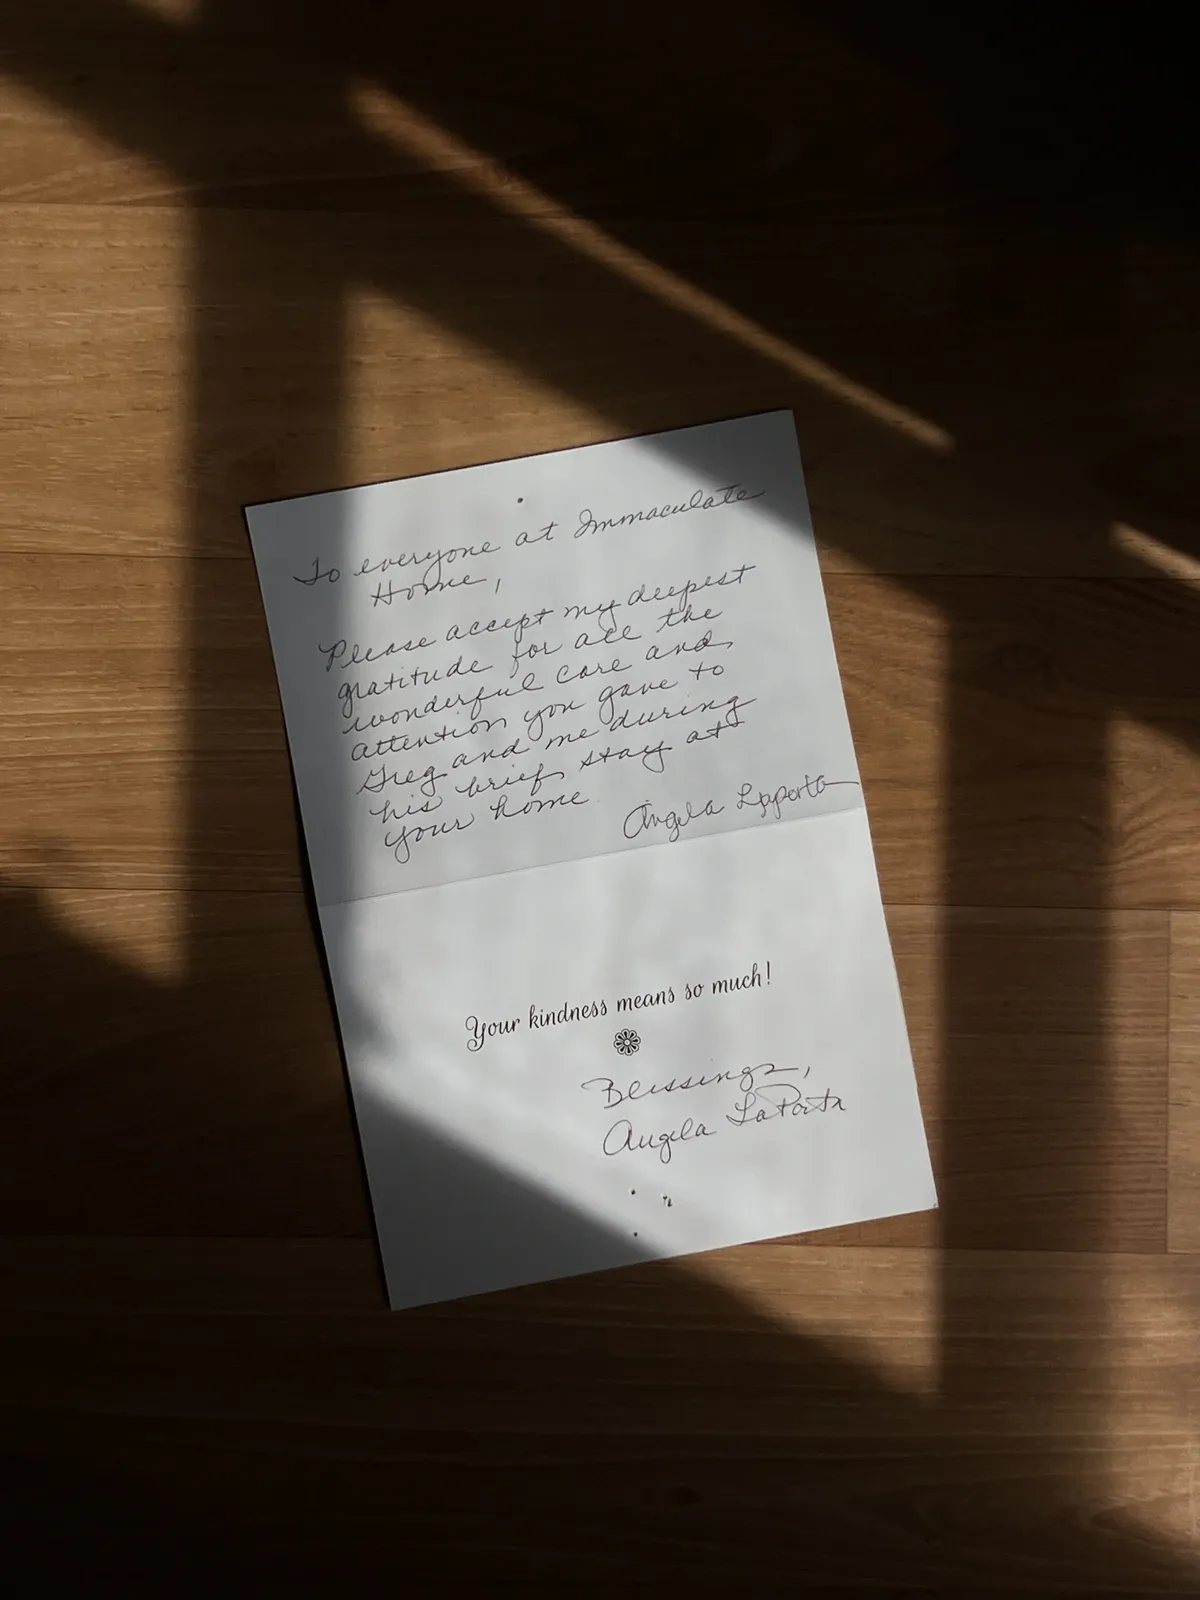 To everyone at Immaculate
Home,
Please accept my deepest
gratitude for all the
wonderful care and
attention you gave to
Greg and me during
his brief stay at
your home
Angela
Your kindness means so much!
Blessings,
Angela LaPorta